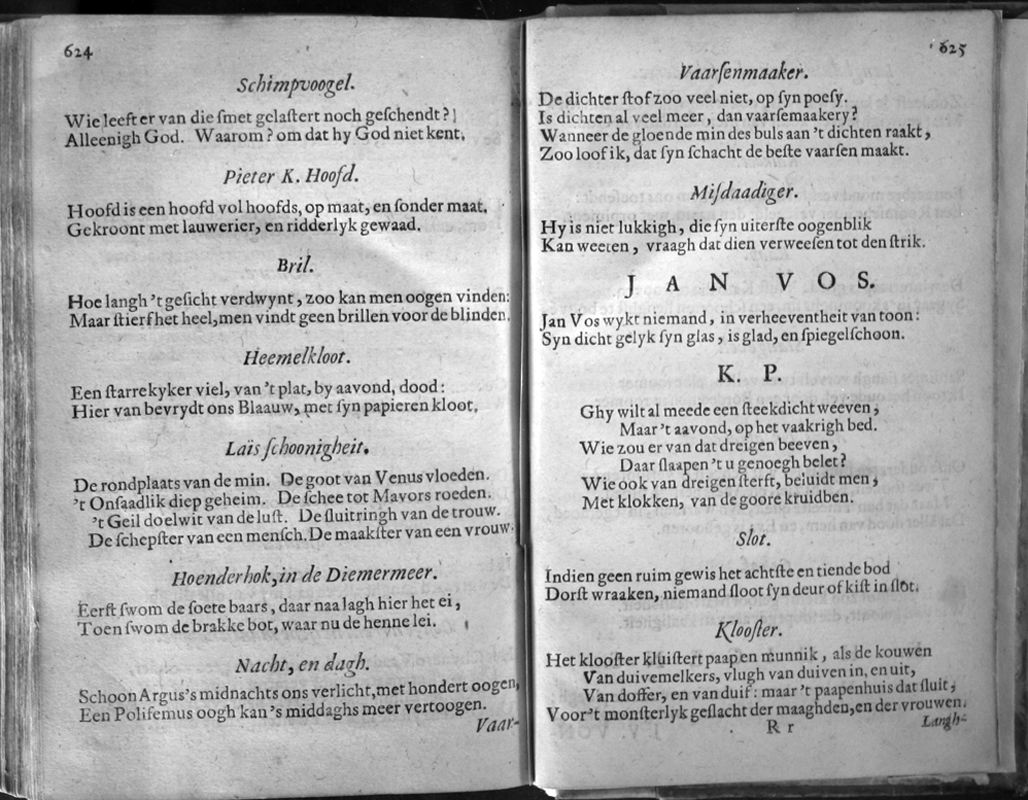 624
Schimpvoogel.
Wie leeft er van die ſmet gelaſtert noch geſchendt?
Alleenigh God. Waarom? om dat hy God niet kent.
Pieter K. Hoofd.
Hoofd is een hoofd vol hoofds, op maat, en ſonder maat.
Gekroont met lauwerier, en ridderlyk gewaad.
Bril.
Hoe langh 't geſicht verdwynt, zoo kan men oogen vinden:
Maar ſtierf het heel, men vindt geen brillen voor de blinden.
Heemelkloot.
Een ſtarrekyker viel, van 't plat, by aavond, dood:
Hier van bevrydt ons Blaauw, met ſyn papieren kloot.
Laïs ſchoonigheit.
De rondplaats van de min. De goot van Venus vloeden.
't Onſaadlik diep geheim. De ſchee tot Mavors roeden.
't Geil doelwit van de luſt. De ſluitringh van de trouw.
De ſchepſter van een menſch. De maakſter van een vrouw.
Hoenderhok, in de Diemermeer.
Eerſt ſwom de ſoete baars, daar naa lagh hier het ei,
Toen ſwom de brakke bot, waar nu de henne lei.
Nacht, en dagh.
Schoon Argus's midnachts ons verlicht, met hondert oogen,
Een Polifemus oogh kan's middaghs meer vertoogen.
Vaar-
625
Vaarſenmaaker.
De dichter ſtof zoo veel niet, op ſyn poeſy.
Is dichten al veel meer, dan vaarſemaakery?
Wanneer de gloende min des buls aan 't dichten raakt,
Zoo loof ik, dat ſyn ſchacht de beſte vaarſen maakt.
Miſdaadiger.
Hy is niet lukkigh, die ſyn uiterſte oogenblik
Kan weeten, vraagh dat dien verweeſen tot den ſtrik.
JAN VOS.
Jan Vos wykt niemand, in verheeventheit van toon:
Syn dicht gelyk ſyn glas, is glad, en ſpiegelſchoon.
K. P.
Ghy wilt al meede een ſteekdicht weeven,
Maar 't aavond, op het vaakrigh bed.
Wie zou er van dat dreigen beeven,
Daar ſlaapen 't u genoegh belet?
Wie ook van dreigen ſterft, beluidt men,
Met klokken, van de goore kruidben.
Slot.
Indien geen ruim gewis het achtſte en tiende bod
Dorſt wraaken, niemand ſloot ſyn deur of kiſt in ſlot.
Klooſter.
Het klooſter kluiſtert paap en munnik, als de kouwen
Van duivemelkers, vlugh van duiven in, en uit,
Van doffer, en van duif: maar 't paapenhuis dat ſluit,
Voor't monſterlyk geſlacht der maaghden, en der vrouwen.
R r
Langh-